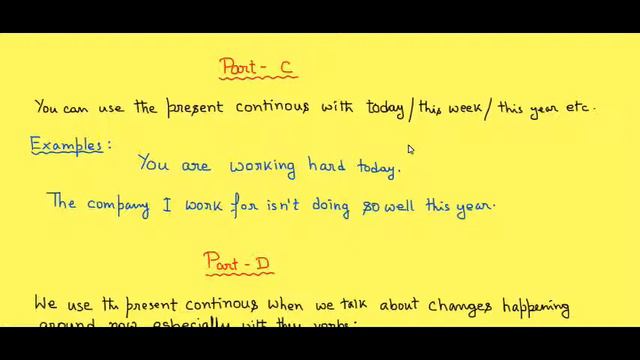 Part- C
You can use the present continous with today/this week/this year etc.
Examples:
You are working hard today.
The company I work for isn't doing so well this year.
Part-D
We use the present continous when we talk about changes happening
around now, especially with these verbs: